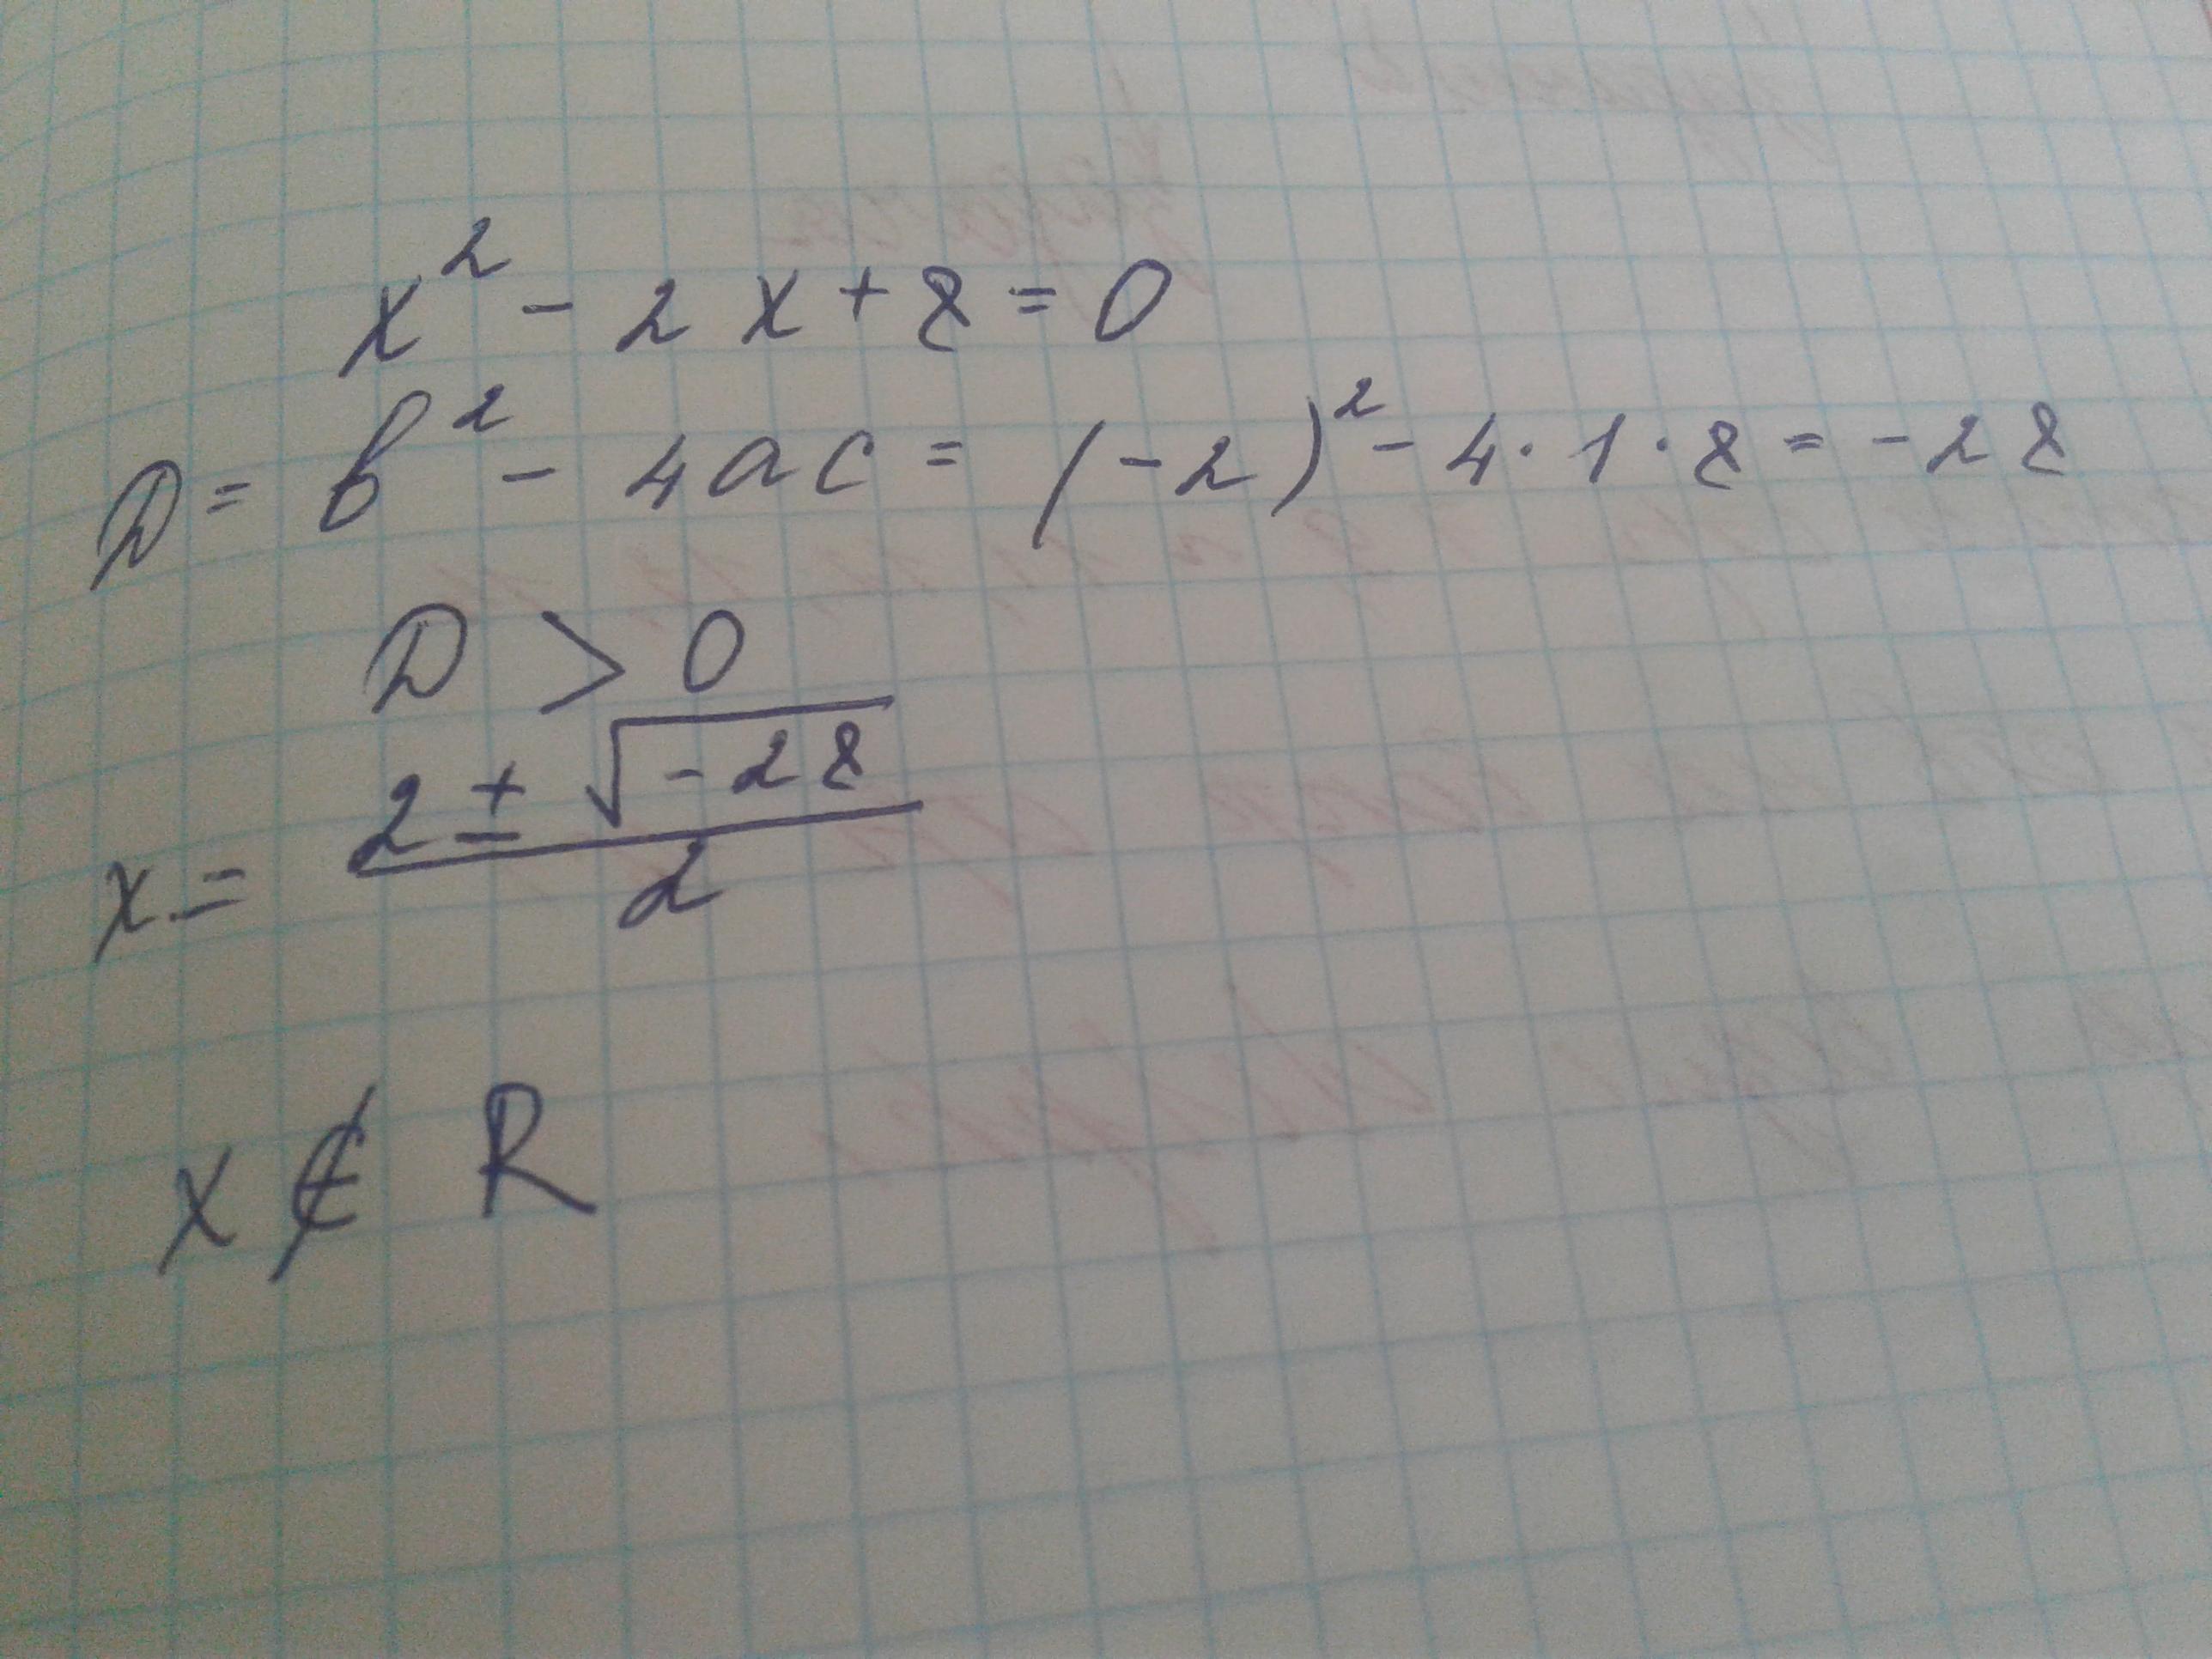 x² - 2x + 8 = 0
D = b² - 4ac = (-2)² - 4·1·8 = -28
D > 0
x = (2 ± √-28) / 2
x ∉ R